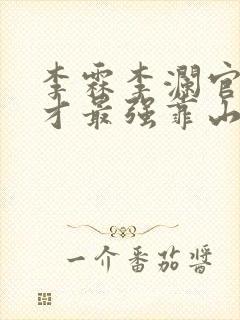 李霖李澜官
才最强靠山
一介番茄酱